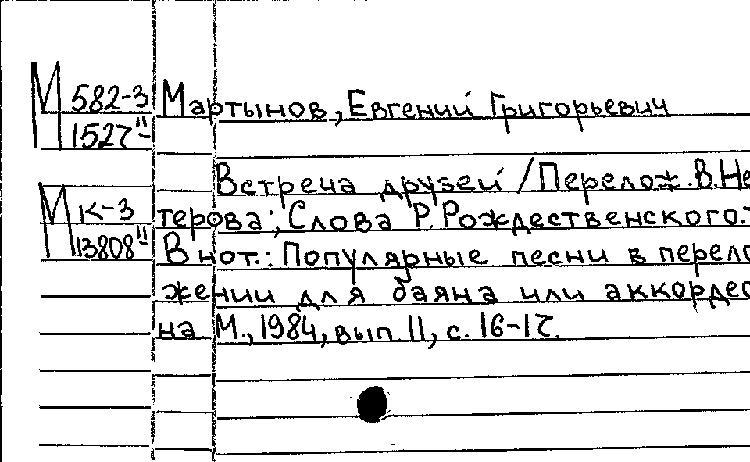 М 582-3
1527"
Мартынов, Евгений Григорьевич
М к-3
13808"
Встреча друзей / Перелож. В. Не
терова; Слова Р. Рождественского.-
В нот.: Популярные песни в перело
жении для баяна или аккордео
на М., 1984, вып. 11, с. 16-17.